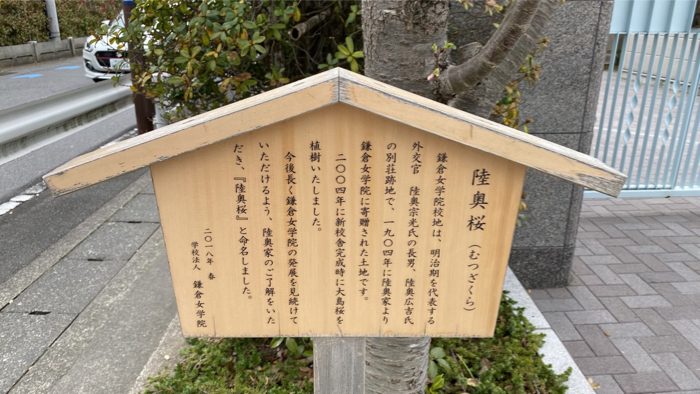 陸奥桜（むつざくら）
鎌倉女学院校地は、明治期を代表する
外交官　陸奥宗光氏の長男、陸奥広吉氏
の別荘跡地で、一九〇四年に陸奥家より
鎌倉女学院に寄贈された土地です。
二〇〇四年に新校舎完成時に大島桜を
植樹いたしました。
今後長く鎌倉女学院の発展を見続けて
いただけるよう、陸奥家のご了解をいた
だき、『陸奥桜』と命名しました。
二〇一八年　春
学校法人　鎌倉女学院